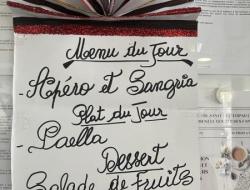 Menu du Jour
- Apéro et Sangria
Plat du Jour
- Paella
Dessert
Salade de Fruits